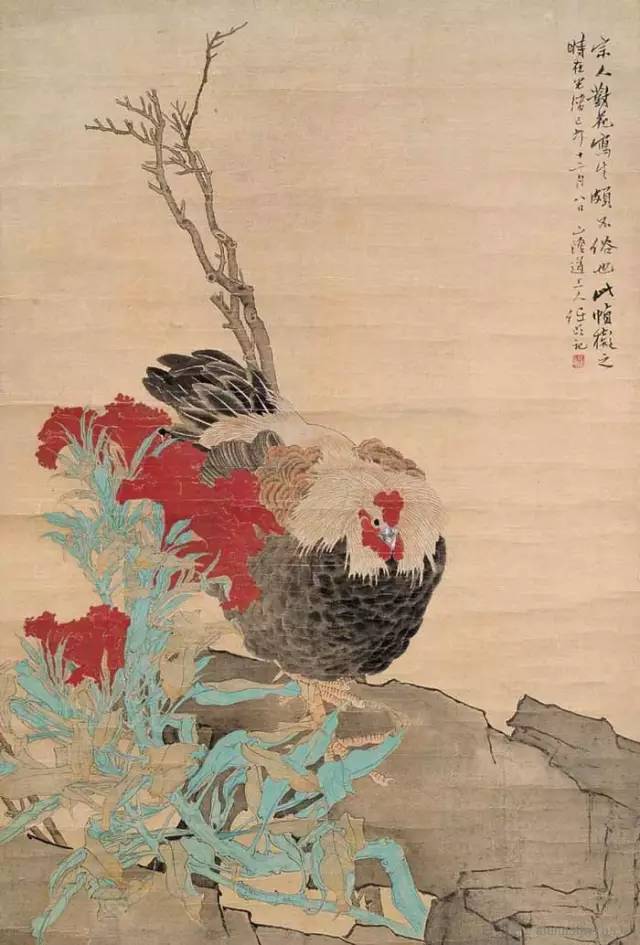 宋人對花寫生頗不俗也此幀擬之
時在光緒己卯十二月八日山陰道上人任頤記